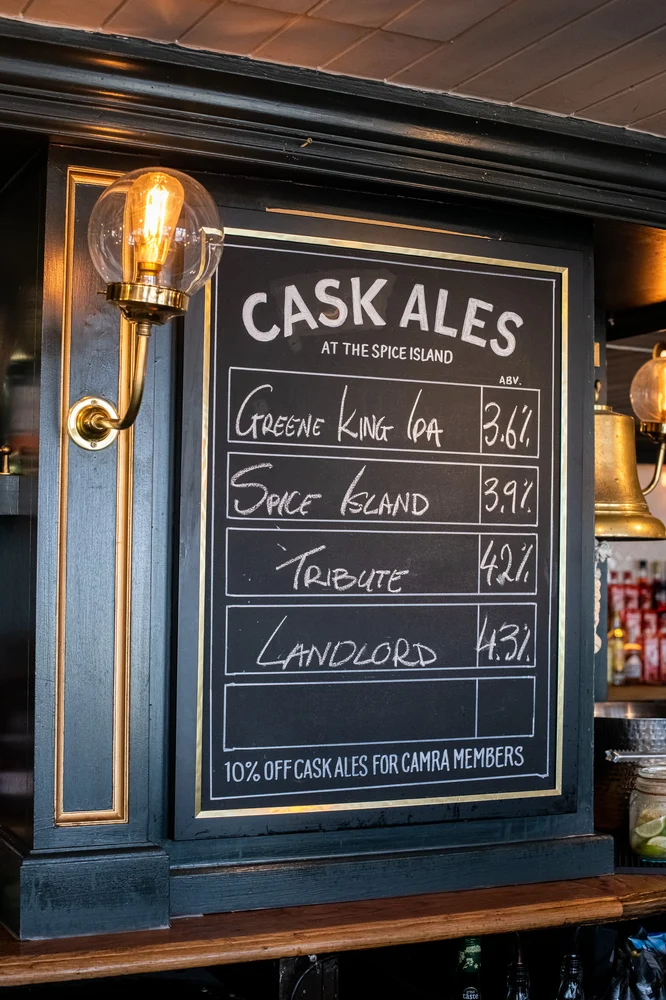 CASK ALES
AT THE SPICE ISLAND
ABV.
GREENE KING IPA 3.6%
SPICE ISLAND 3.9%
TRIBUTE 4.2%
LANDLORD 4.3%
10% OFF CASK ALES FOR CAMRA MEMBERS